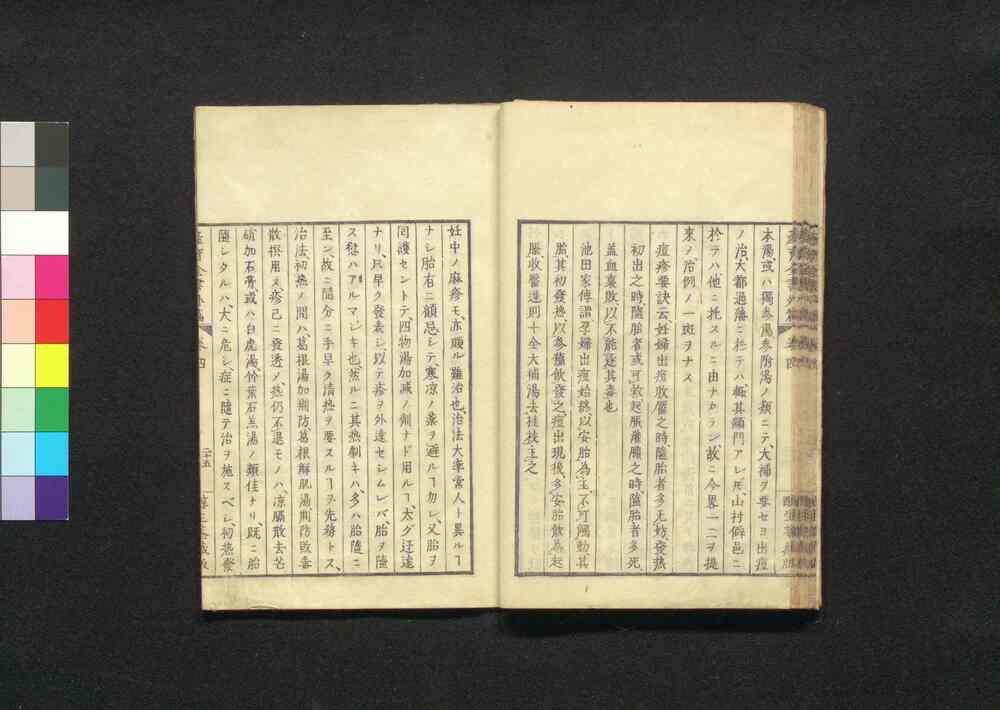 本湯或ハ獨参湯参附湯ノ類ニテ、大補ヲ要セヨ出痘
ノ治、大都過藩ニ於テハ、輙其顓門アレ𪜈、山村僻邑ニ
於テハ他ニ托スルニ由ナカラン、故ニ今畧一二ヲ提
来ヲ、治例ノ一斑ヲナス
痘疹要訣云妊婦出痘收靨之時、墮胎者多无妨、發熱
初出之時、墮胎者或可救起脹灌膿之時墮胎者多死
盖血裏敗、以不能逐其毒也
池田家傳謂孕婦出痘始終以安胎為主、不可觸動其
胎、其初發熱、以参蘓飲發之、痘出現後、多安胎飲為起
脹收靨進則十全大補湯去桂枝主之
妊中ノ麻疹モ、亦頗ル難治也、治法大率常人ト異ルヿ
ナシ胎右ニ顧忌シテ、寒凉ノ薬ヲ避ルヿ勿レ、又胎ヲ
回護セントテ、四物湯加減ノ剤ナド用ルヿ、太ダ迂遠
ナリ、只早ク發表シ、以テ疹ヲ外達セシムレバ、胎ヲ墮
ス愁ハアルマジキ也、然ルニ其熱劇キハ、多ハ胎墮ニ
至ン、故ニ随分ニ手早ク清熱ヲ要スルヿヲ先務トス、
治法、初熱ノ間ハ、葛根湯加荊防、葛根解肌湯、荊防敗毒
散撰用ス、疹已ニ發透メ、熱仍不退モノハ、凉膈散去芒
硝加石膏或ハ白虎湯竹葉石羔湯ノ類佳ナリ、既ニ胎
墮シタルハ、大ニ危シ、症ニ隨テ治ヲ施スベシ、初熱齊
巻四
二十五